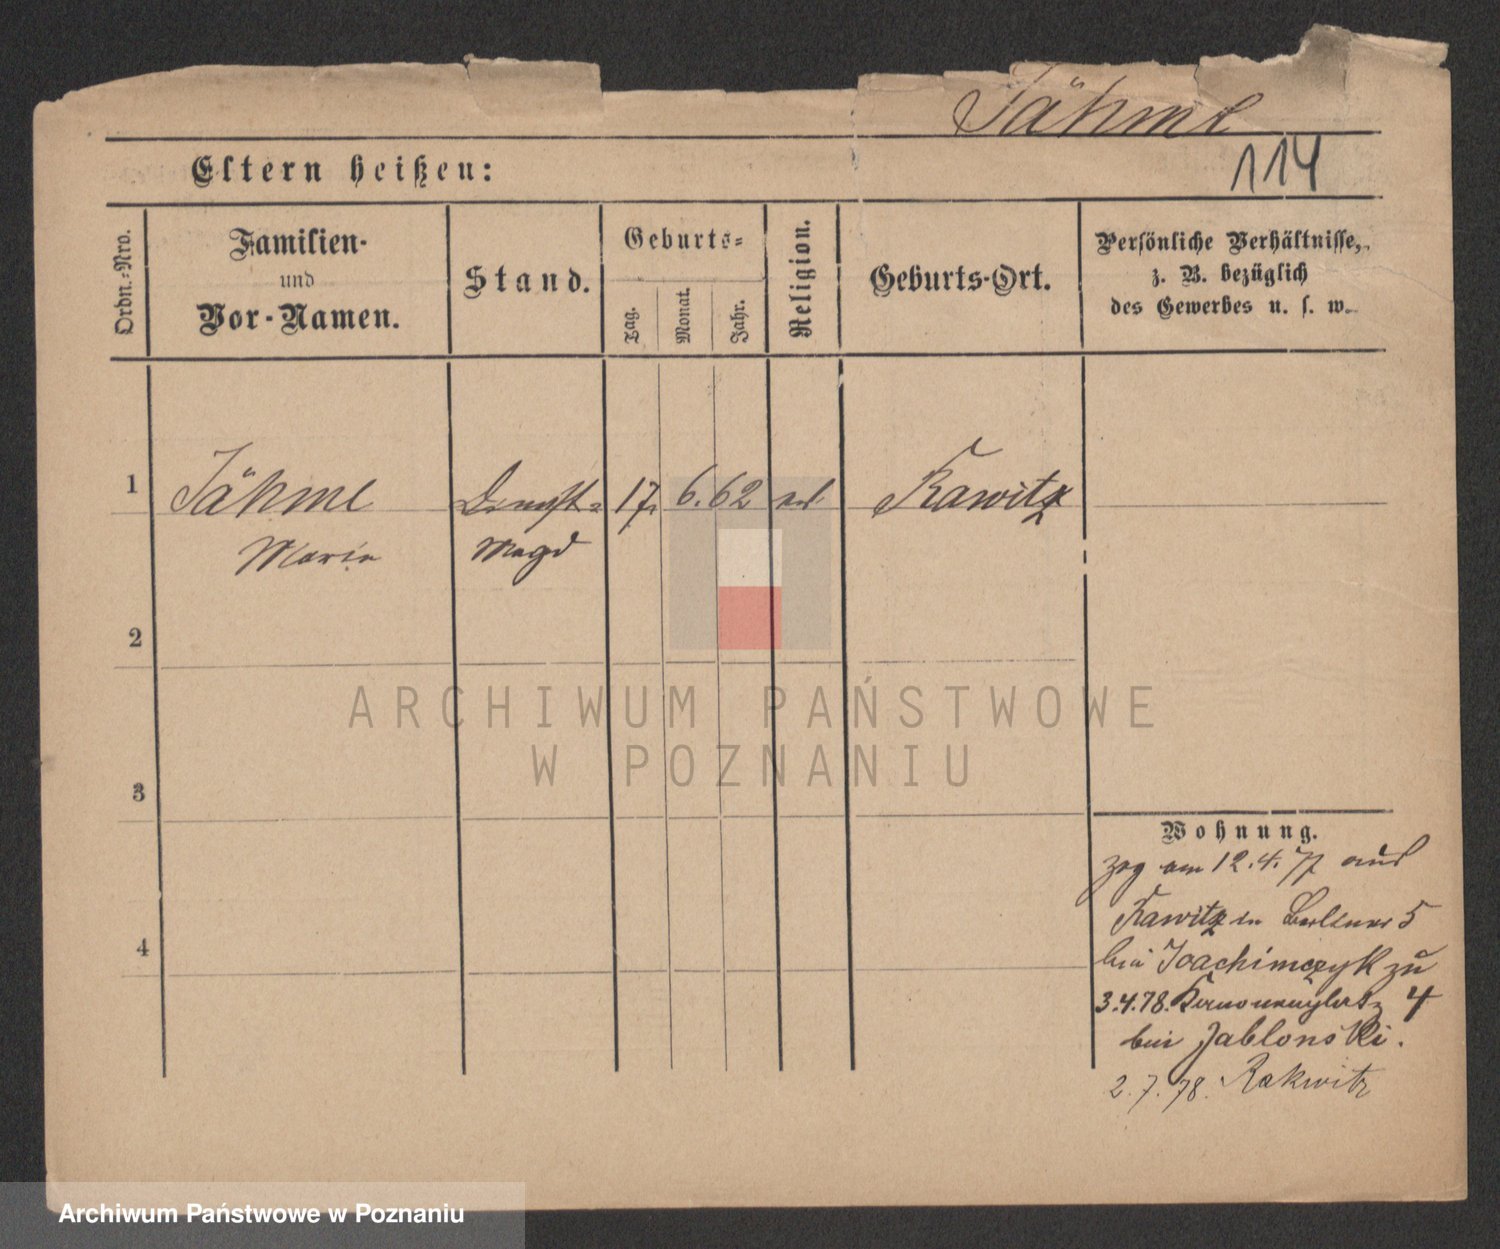 Jähme
114
Eltern heißen:
Ordn.-Nro.
Familien-
und
Vor-Namen.
Stand.
Geburts-
Tag.
Monat.
Jahr.
Religion.
Geburts-Ort.
Persönliche Verhältnisse,
z. B. bezüglich
des Gewerbes u. s. w.
1
Jähme
Dienst-
17.
6.
62
Rawitz
Marie
Magd
2
ARCHIWUM PAŃSTWOWE
W POZNANIU
3
Wohnung.
zog am 12.4.77 aus
Rawitz in Berliner 5
bei Joachimczyk zu
4
3.4.78. Kanonenplatz 4
bei Jablonski.
2.7.78. Rakwitz
Archiwum Państwowe w Poznaniu